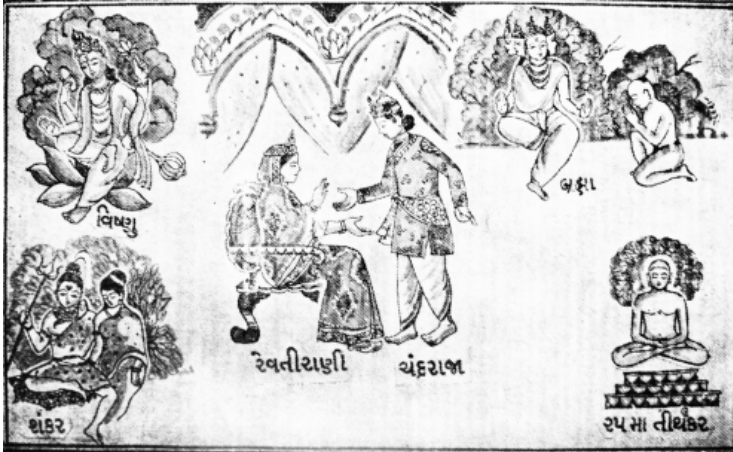 વિષ્ણુ
બ્રહ્મા
રેવતીરાણી
ચંદ્રરાજા
શંકર
૨૫ મા તીર્થંકર